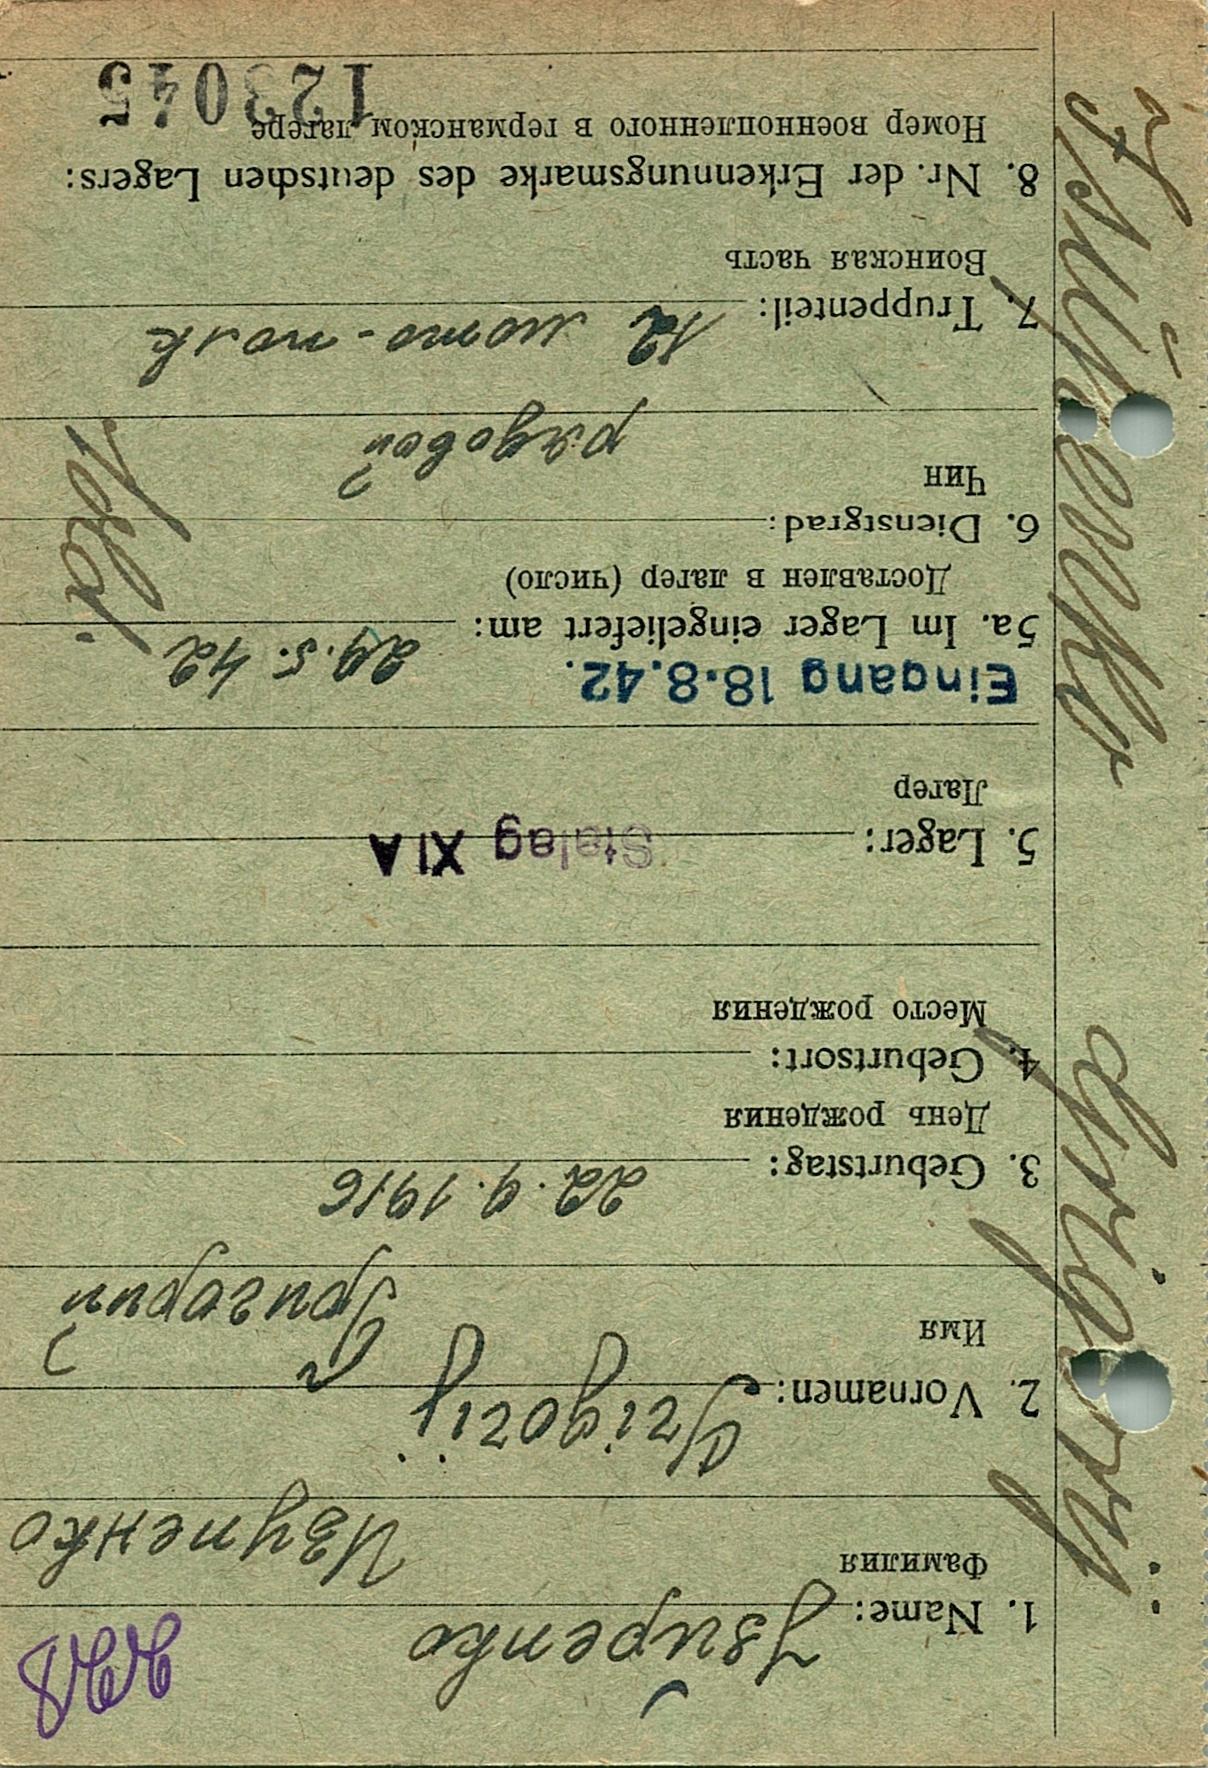 228
1. Name: Jsúpenko
Фамилия Изупенко
2. Vornamen: Grigorij
Имя Григорий
3. Geburtstag: 22.9.1916
День рождения
4. Geburtsort:
Место рождения
5. Lager: Stalag XIA
Лагер
Eingang 18.8.42.
5a. Im Lager eingeliefert am: 29.5.42
Доставлен в лагер (число)
6. Dienstgrad: Sold.
Чин рядовой
7. Truppenteil: 12 мото-полк
Воинская часть
8. Nr. der Erkennungsmarke des deutschen Lagers:
Номер военнопленного в германском лагере 123045
Grigorij